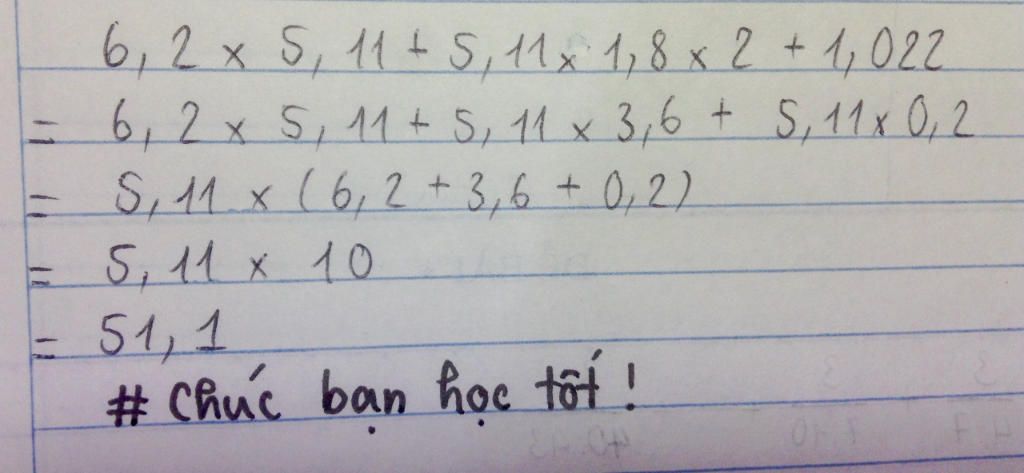 6,2 x 5,11 + 5,11 x 1,8 x 2 + 1,022
= 6,2 x 5,11 + 5,11 x 3,6 + 5,11 x 0,2
= 5,11 x (6,2 + 3,6 + 0,2)
= 5,11 x 10
= 51,1
# Chúc bạn học tốt !